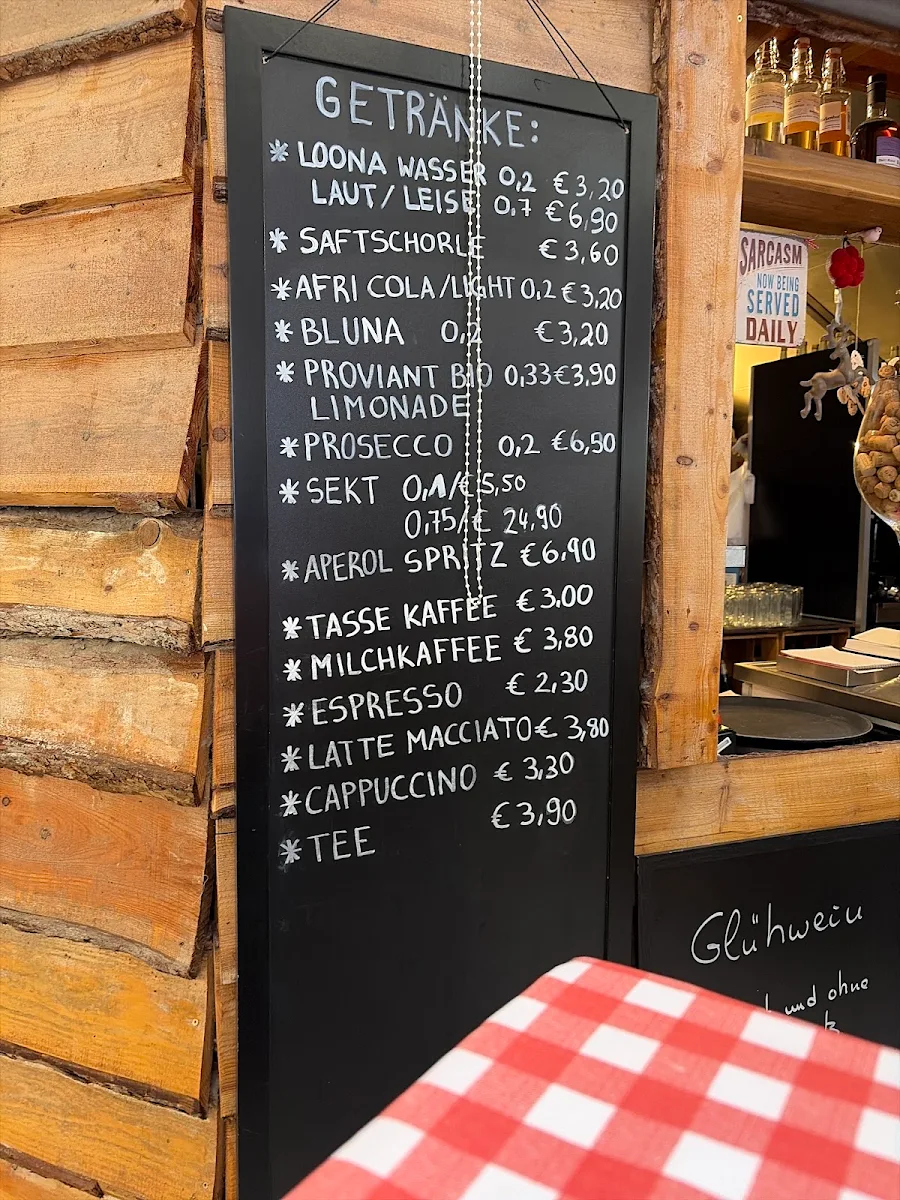 GETRÄNKE:
* LOONA WASSER 0,2 € 3,20
LAUT/LEISE 0,7 € 6,90
* SAFTSCHORLE € 3,60
* AFRI COLA/LIGHT 0,2 € 3,20
* BLUNA 0,2 € 3,20
* PROVIANT BIO 0,33 € 3,90
LIMONADE
* PROSECCO 0,2 € 6,90
* SEKT 0,1/€ 5,50
0,75/€ 24,90
* APEROL SPRITZ € 6,90
* TASSE KAFFEE € 3.00
* MILCHKAFFEE € 3,80
* ESPRESSO € 2,30
* LATTE MACCIATO € 3,80
* CAPPUCCINO € 3,30
* TEE € 3,90
SARCASM
NOW BEING
SERVED
DAILY
Glühwein
und ohne